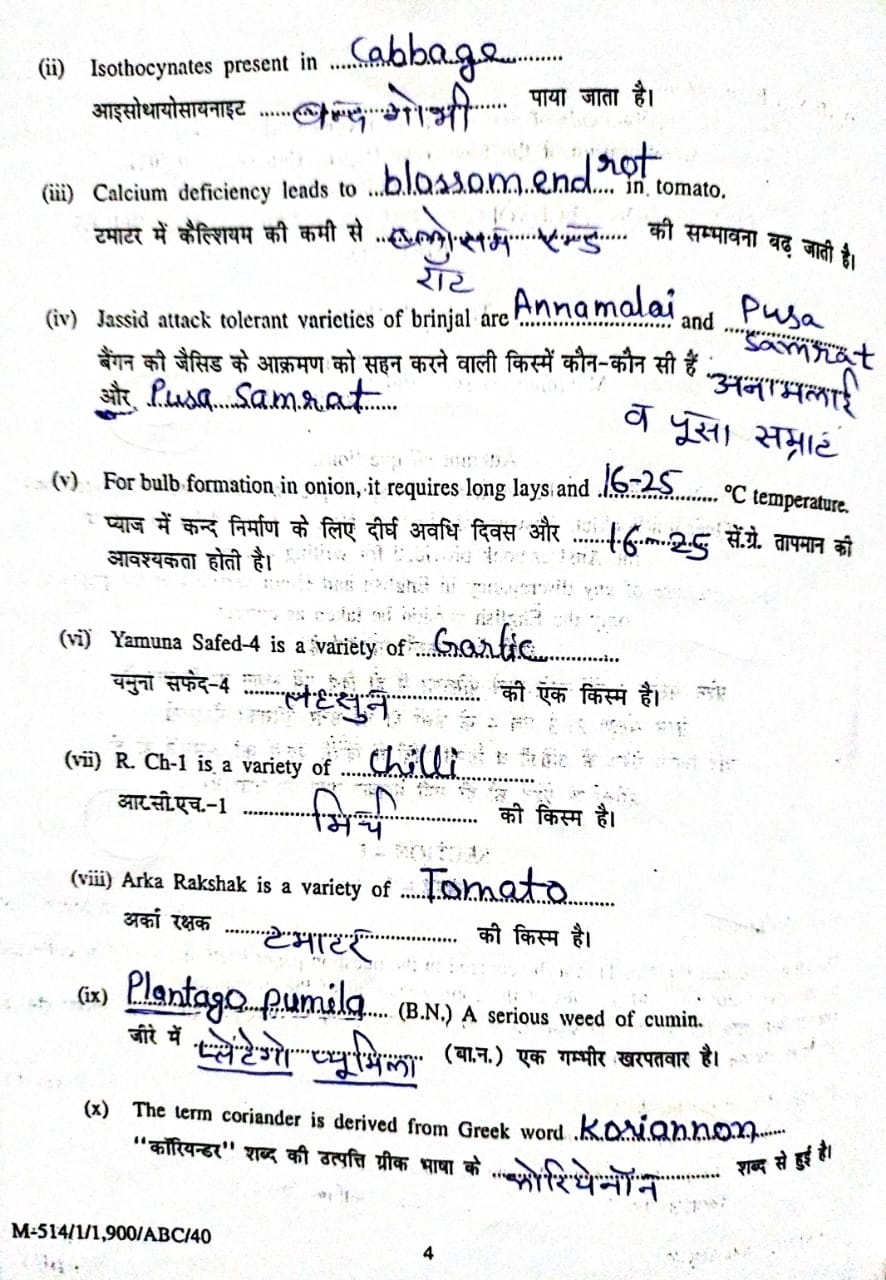 (ii) Isothocynates present in ...Cabbage...
आइसोथायोसायनाइट ...बन्द गोभी... पाया जाता है।
(iii) Calcium deficiency leads to ...blossom end rot... in tomato.
टमाटर में कैल्शियम की कमी से ...ब्लोसम एण्ड... की सम्भावना बढ़ जाती है।
रॉट
(iv) Jassid attack tolerant varieties of brinjal are Annamalai and Pusa
Samrat
बैंगन की जैसिड के आक्रमण को सहन करने वाली किस्में कौन-कौन सी हैं अनामलाई
और Pusa Samrat
व पूसा सम्राट
(v) For bulb formation in onion, it requires long lays and 16-25 °C temperature.
प्याज में कन्द निर्माण के लिए दीर्घ अवधि दिवस और ...16-25 सें.ग्रे. तापमान की
आवश्यकता होती है।
(vi) Yamuna Safed-4 is a variety of ...Garlic...
यमुना सफेद-4 ...लहसुन... की एक किस्म है।
(vii) R. Ch-1 is a variety of ...Chilli...
आर.सी.एच.-1 ...मिर्च... की किस्म है।
(viii) Arka Rakshak is a variety of ...Tomato...
अर्का रक्षक ...टमाटर... की किस्म है।
(ix) Plantago pumila... (B.N.) A serious weed of cumin.
जीरे में ...प्लेंटेगो प्यूमिला... (वा.न.) एक गम्भीर खरपतवार है।
(x) The term coriander is derived from Greek word .Koriannon...
"कॉरियन्डर" शब्द की उत्पत्ति ग्रीक भाषा के ...कोरियेनॉन... शब्द से हुई है।
M-514/1/1,900/ABC/40
4